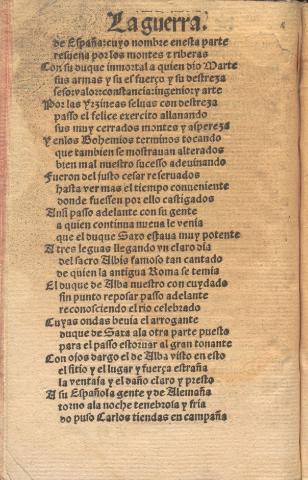 La guerra.
de España: cuyo nombre enesta parte
resuena por los montes t riberas
Con su duque inmortal a quien dio Marte
sus armas y su esfuerço y su destreza
seso: valor: constancia: ingenio: y arte
Por las yrzineas seluas con destreza
passo el felice exercito allanando
sus muy cerrados montes y aspereza
Y enlos Bohemios terminos tocando
que tambien se mostrauan alterados
bien mal nuestro sucesso adeuinando
Fueron del justo cesar reseruados
hasta ver mas el tiempo conueniente
donde fuessen por ello castigados
Ansi passo adelante con su gente
a quien continua nueua le venia
que el duque Saxo estaua muy potente
A tres leguas llegando vn claro dia
del sacro Albis famoso tan cantado
de quien la antigua Roma se temia
El duque de Alba nuestro con cuydado
sin punto reposar passo adelante
reconosciendo el rio celebrado
Cuyas ondas beuia el arrogante
duque de Saxa ala otra parte puesto
para el passo estoruar al gran tonante
Con ojos dargo el de Alba visto en esto
el sitio y el lugar y fuerça estraña
la ventaja y el daño claro y presto
A su Española gente y de Alemaña
torno ala noche tenebrosa y fria
do puso Carlos tiendas en campaña